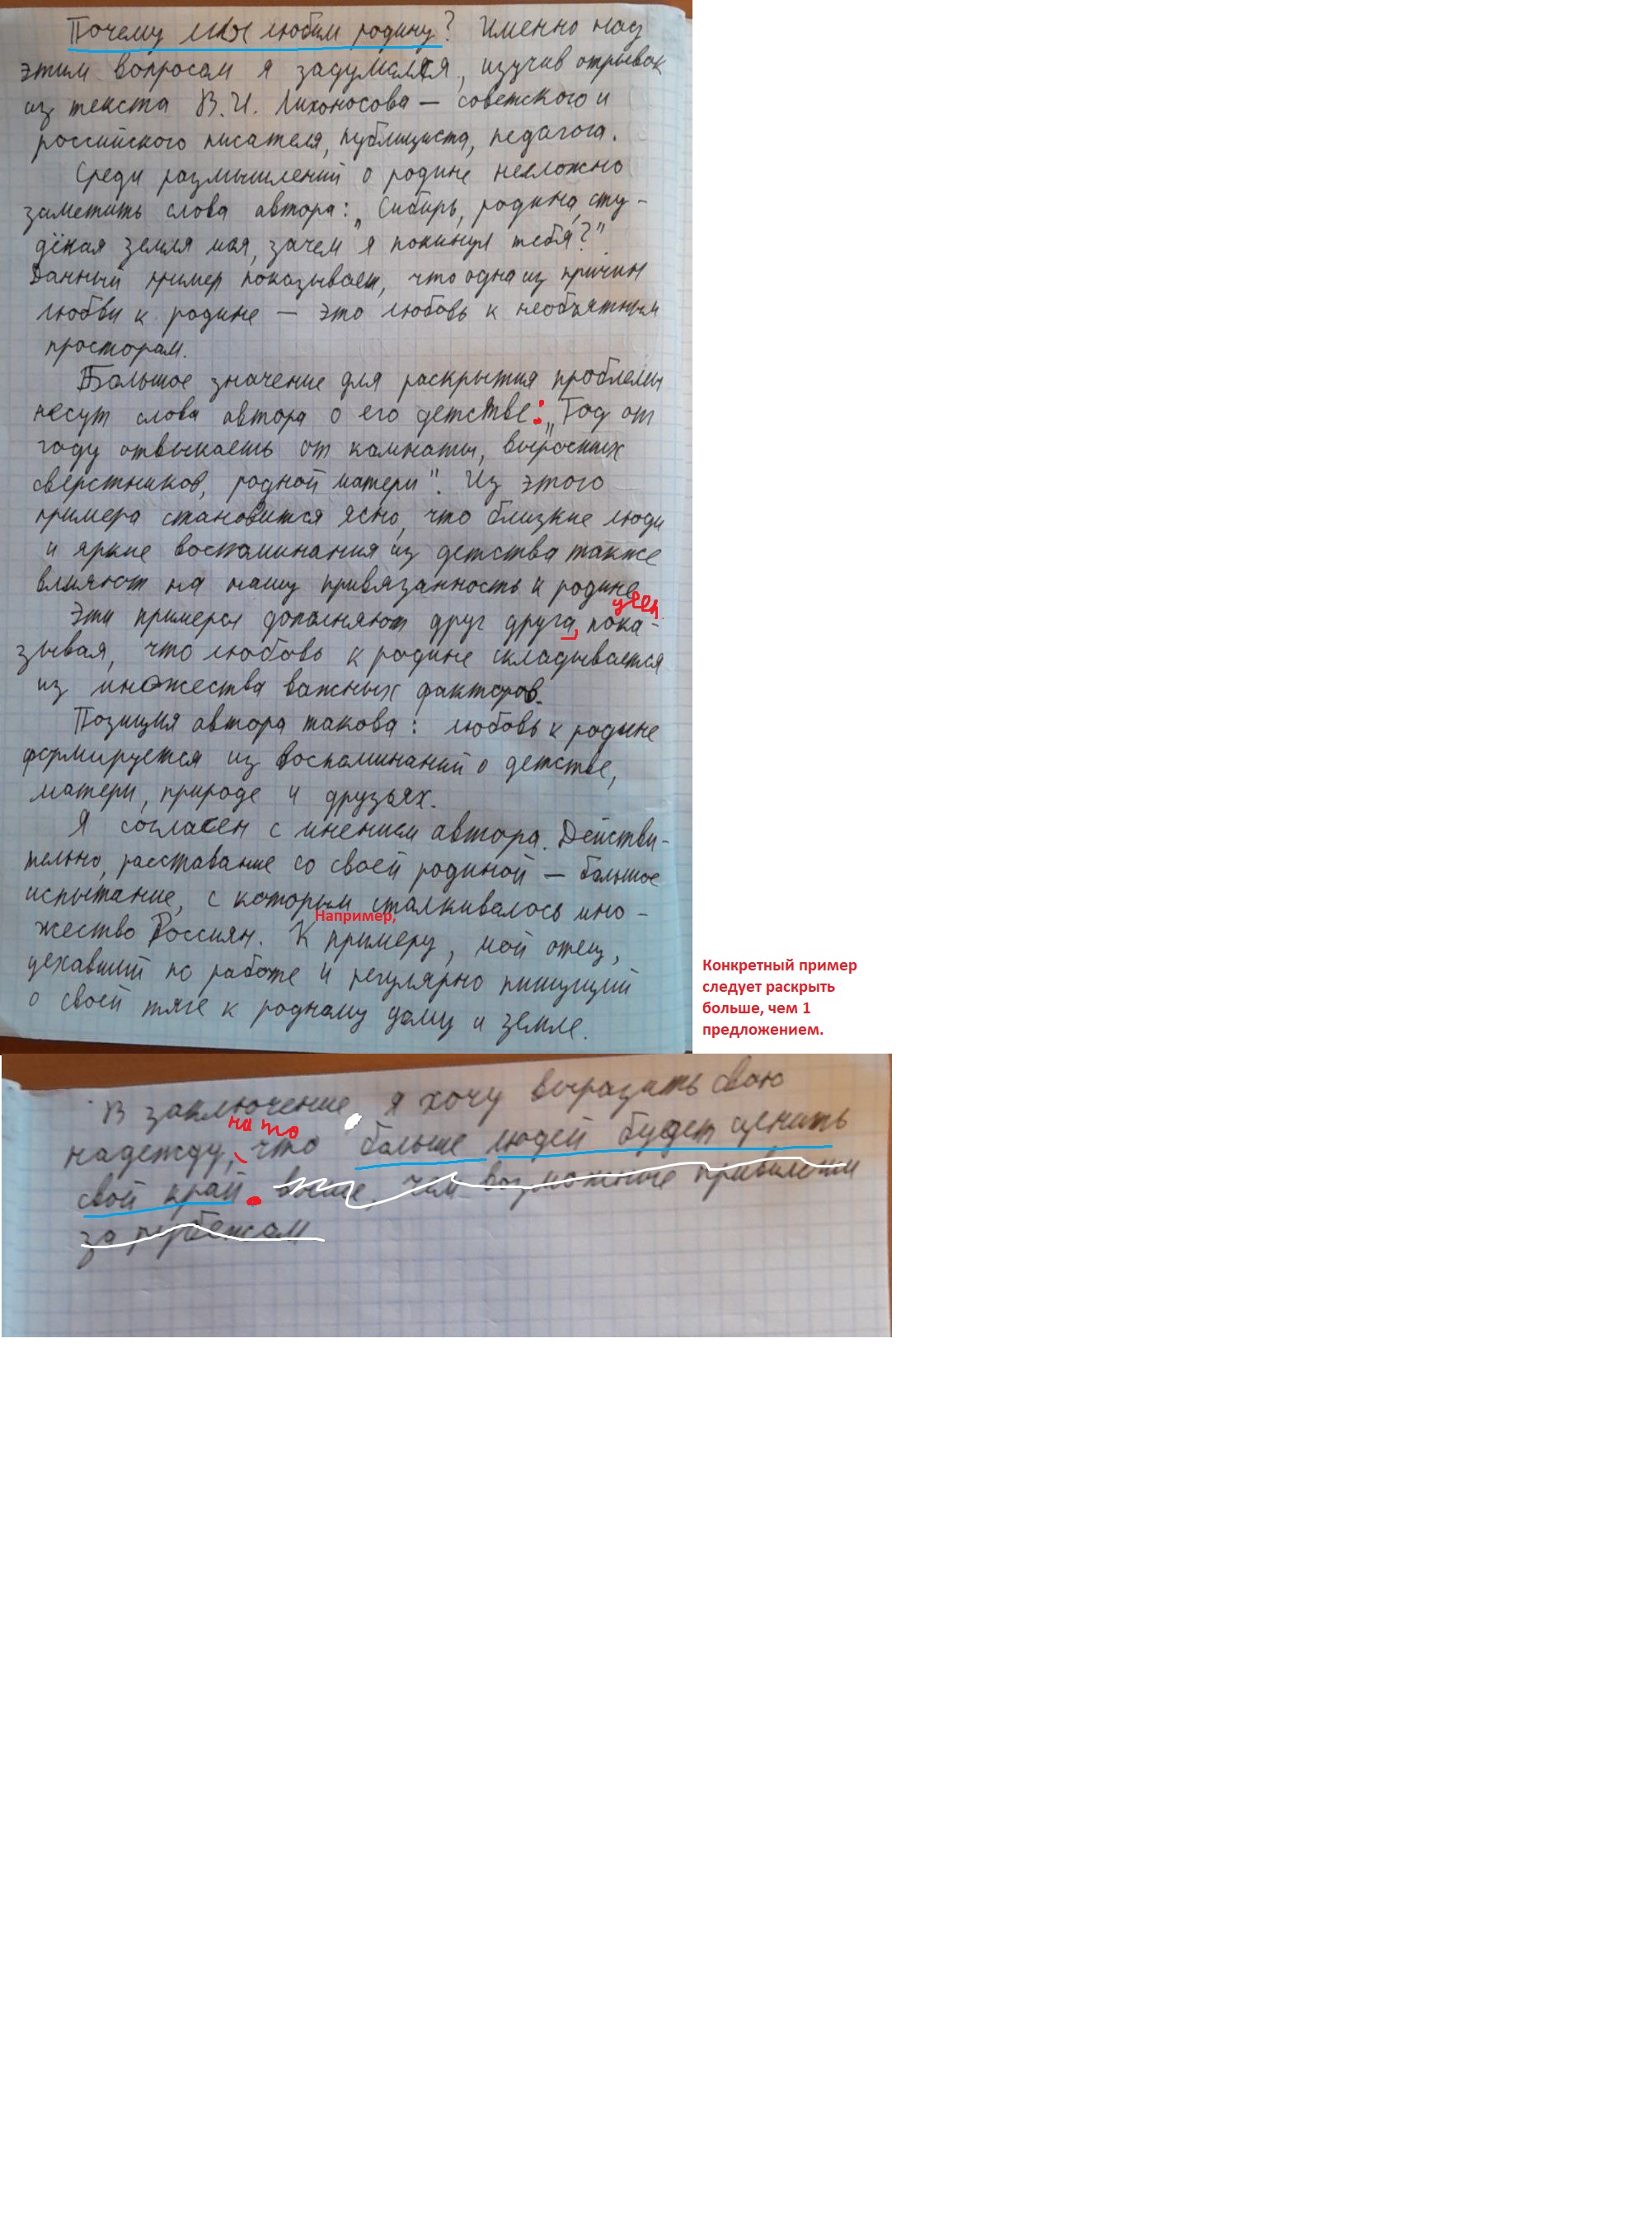 Почему мы любим родину? Именно над
этим вопросом я задумался, изучив отрывок
из текста В.И. Лихоносова — советского и
российского писателя, публициста, педагога.
Среди размышлений о родине несложно
заметить слова автора: „Сибирь, родина, сту-
дёная земля моя, зачем я покинул тебя?"
Данный пример показывает, что одна из причин
любви к родине — это любовь к необъятным
просторам.
Большое значение для раскрытия проблемы
несут слова автора о его детстве: „Год от
году отвыкаешь от комнаты, выросших
сверстников, родной матери". Из этого
примера становится ясно, что близкие люди
и яркие воспоминания из детства также
влияют на нашу привязанность к родине
Эти примеры дополняют друг друга, пока-
зывая, что любовь к родине складывается
из множества важных факторов.
Позиция автора такова: любовь к родине
формируется из воспоминаний о детстве,
матери, природе и друзьях.
Я согласен с мнением автора. Действи-
тельно, расставание со своей родиной — большое
испытание, с которым сталкивалось мно-
Например,
жество Россиян. К примеру, мой отец,
уехавший по работе и регулярно пишущий
о своей тяге к родному дому и земле.
Конкретный пример
следует раскрыть
больше, чем 1
предложением.
В заключение я хочу выразить свою
на то
надежду, что больше людей будет ценить
свой край. выше, чем возможные привилегии
за рубежом